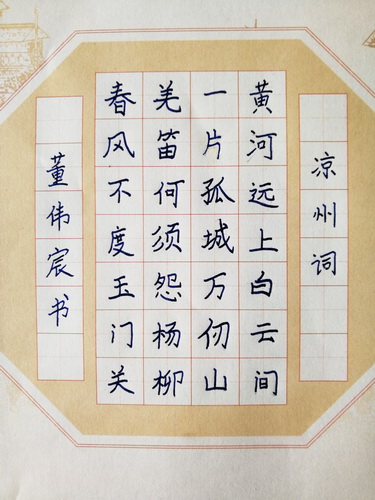 凉州词
黄河远上白云间
一片孤城万仞山
羌笛何须怨杨柳
春风不度玉门关
董伟宸书